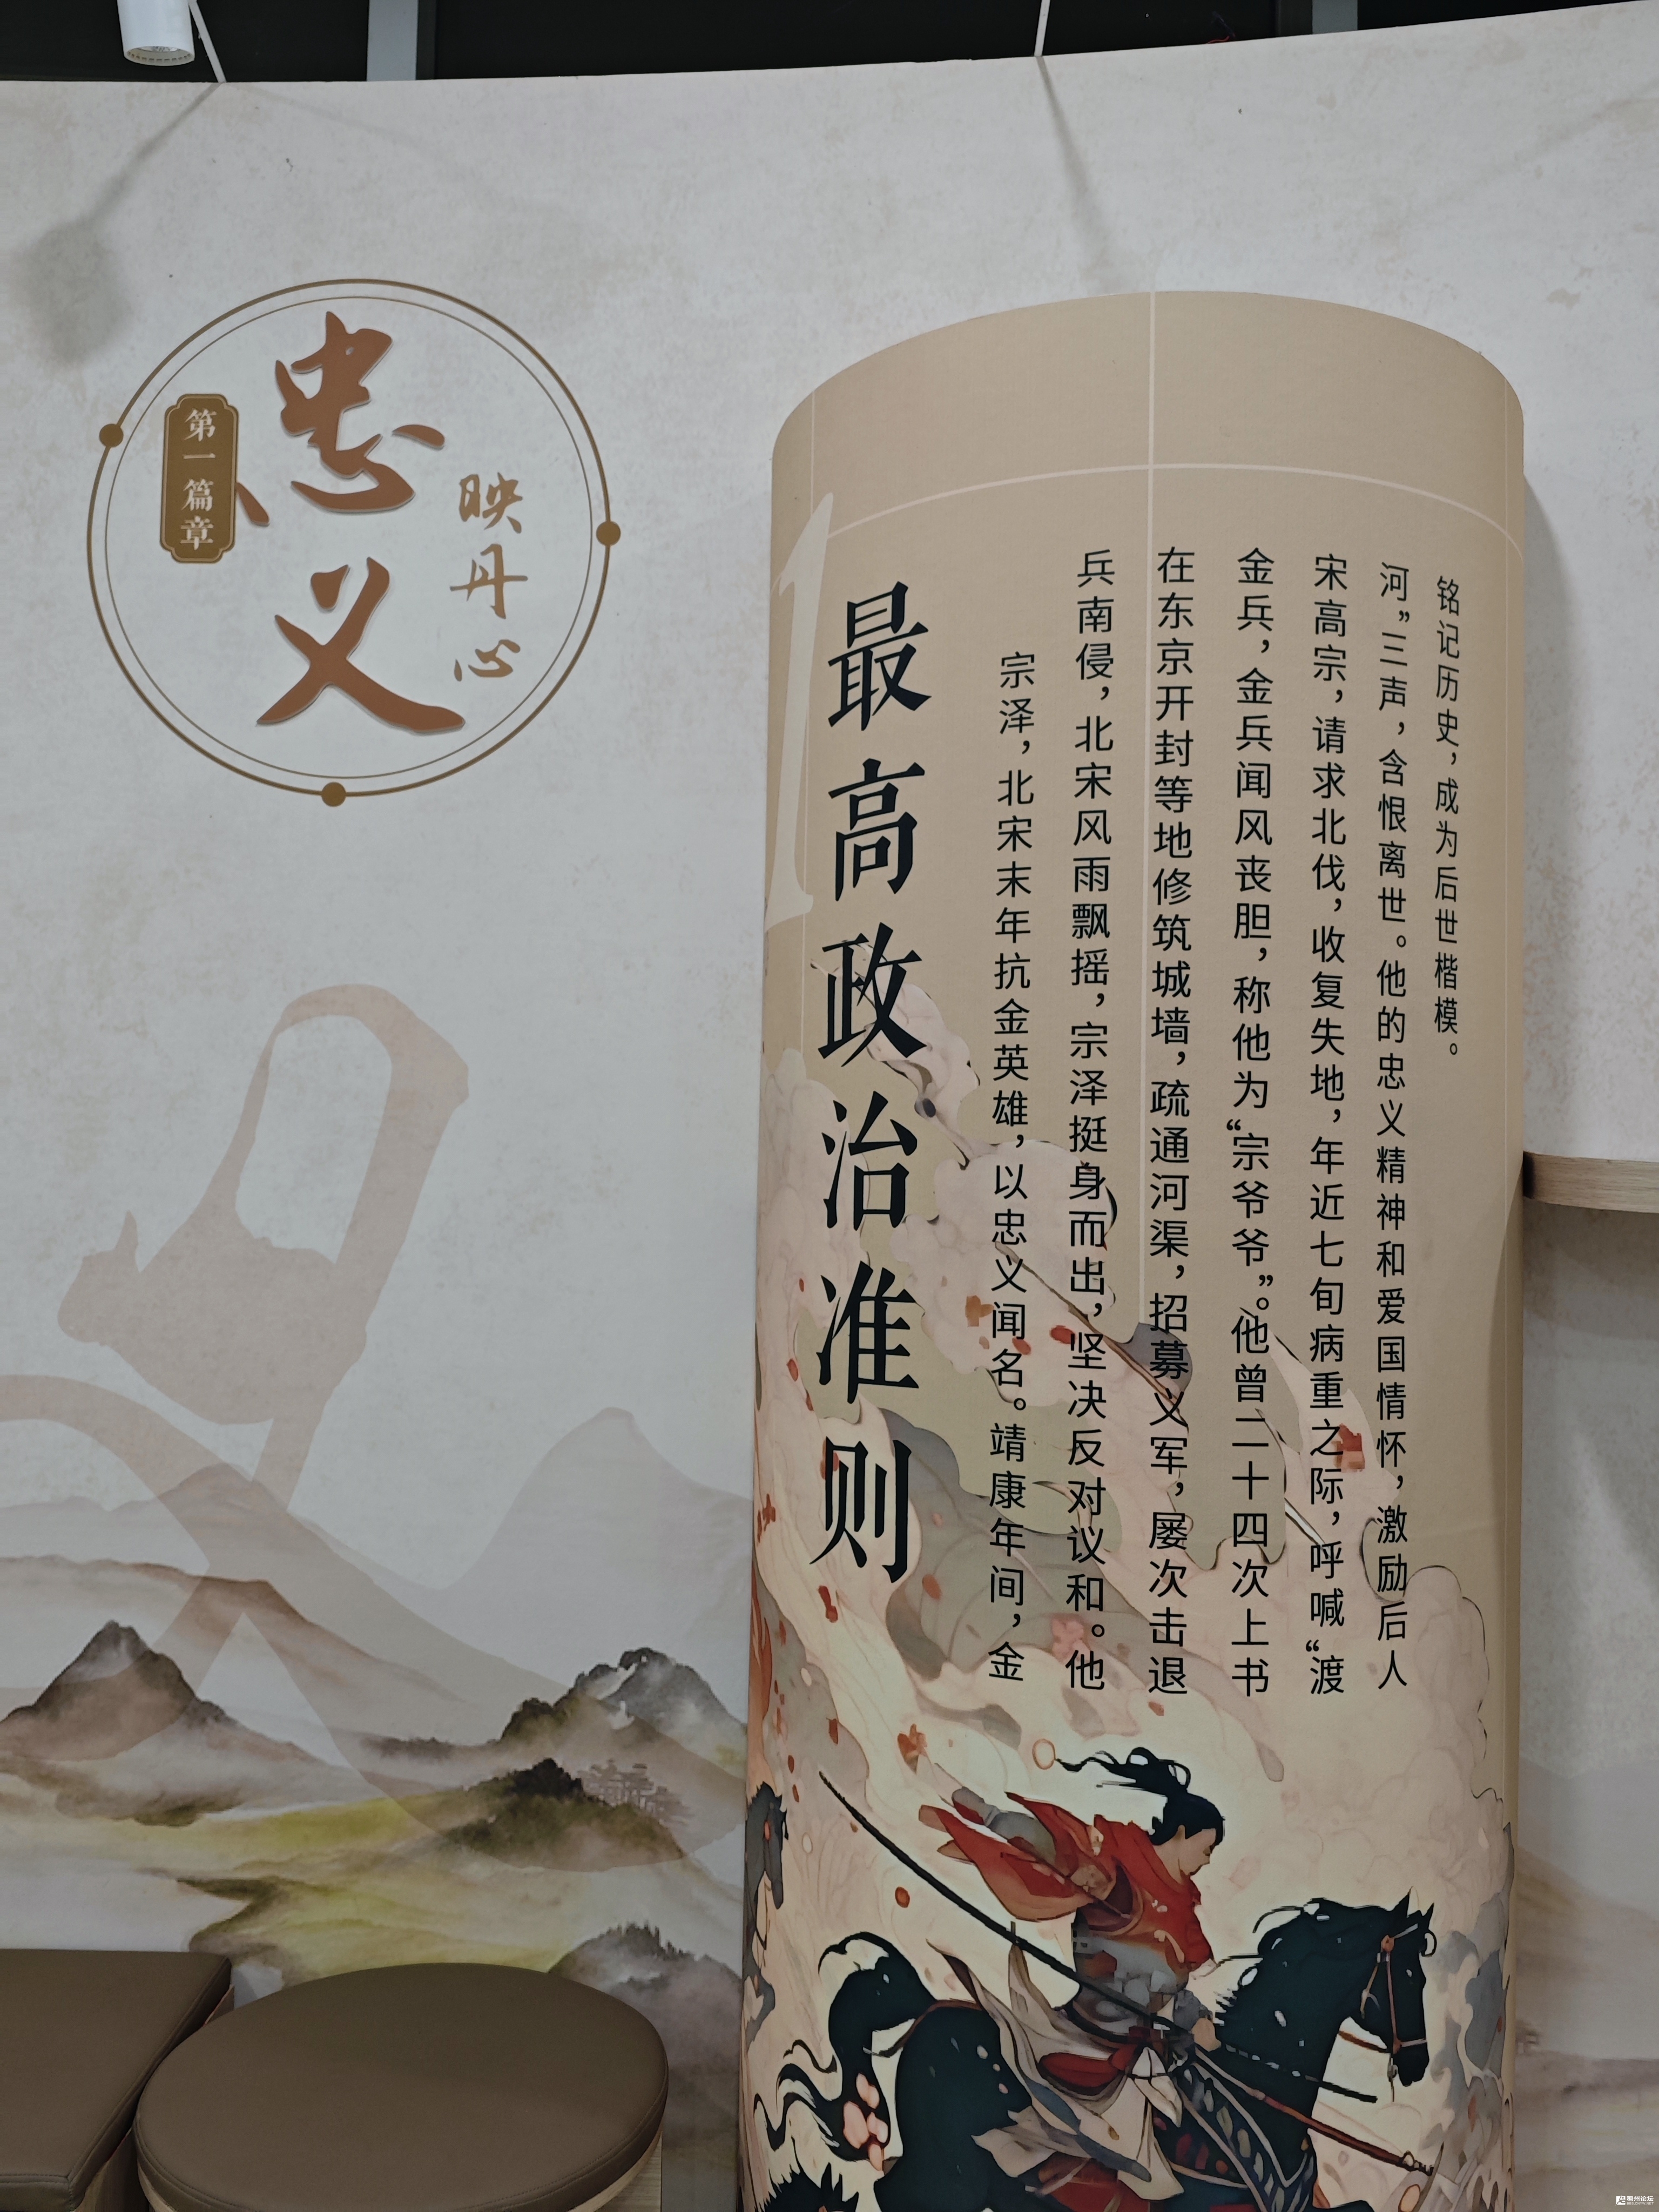 第一篇章
忠义
映丹心
1
最高政治准则
宗泽，北宋末年抗金英雄，以忠义闻名。靖康年间，金
兵南侵，北宋风雨飘摇，宗泽挺身而出，坚决反对议和。他
在东京开封等地修筑城墙，疏通河渠，招募义军，屡次击退
金兵，金兵闻风丧胆，称他为“宗爷爷”。他曾二十四次上书
宋高宗，请求北伐，收复失地，年近七旬病重之际，呼喊“渡
河”三声，含恨离世。他的忠义精神和爱国情怀，激励后人
铭记历史，成为后世楷模。
稠州论坛